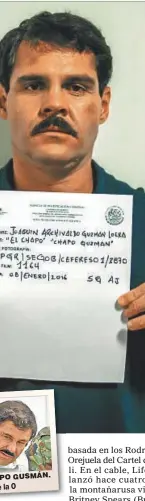 JOAQUIN ARCHIVALDO GUZMÁN LOERA
"EL CHAPO" "CHAPO GUZMAN"
FOTOGRAFÍA:
PGR/SEGOB/CEFERESO 1/3870
1164
08/ENERO/2016 SG AJ
PO GUSMÁN.
la 0
basada en los Rodr
Orejuela del Cartel d
li. En el cable, Life
lanzó hace cuatro
la montañarusa vi
Britney Spears (Bri